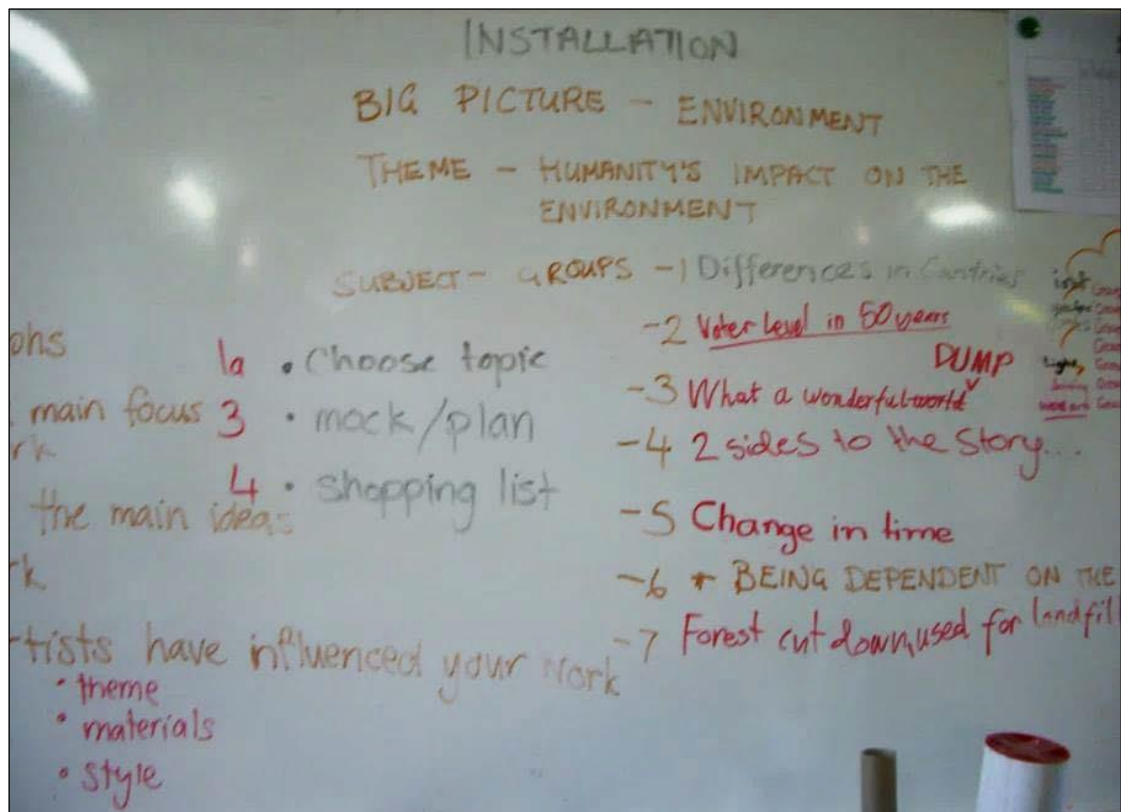 INSTALLATION
BIG PICTURE - ENVIRONMENT
THEME - HUMANITY'S IMPACT ON THE
ENVIRONMENT
SUBJECT - GROUPS - 1 Differences in Contries
-2 Voter Level in 50 years
DUMP
-3 What a wonderful world
-4 2 sides to the story...
-5 Change in time
-6 * BEING DEPENDENT ON THE
-7 Forest cut down, used for landfill
1a • Choose topic
3 • mock/plan
4 • shopping list
ohs
main focus
rk
the main ideas
rk
tists have influenced your work
• theme
• materials
• style